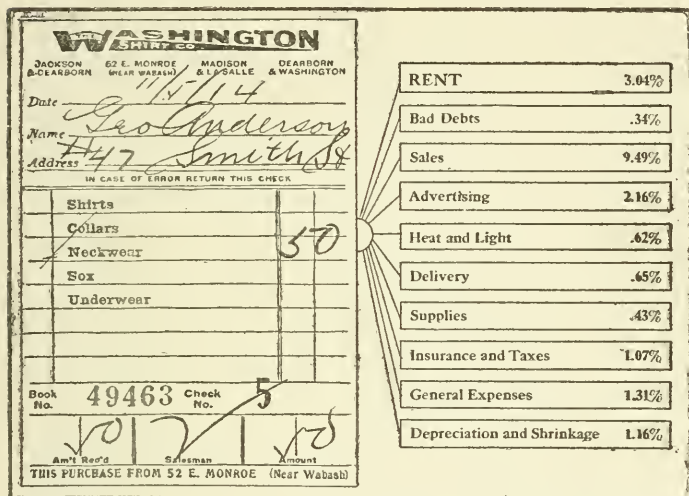 WASHINGTON
SHIRT CO.
JACKSON & DEARBORN 62 E. MONROE (NEAR WABASH) MADISON & LA SALLE DEARBORN & WASHINGTON
Date 11/5/14
Name Geo Anderson
Address #47 Smith St
IN CASE OF ERROR RETURN THIS CHECK
Shirts
Collars
Neckwear 50
Sox
Underwear
Book No. 49463 Check No. 5
50 50
Am't Rec'd Salesman Amount
THIS PURCHASE FROM 52 E. MONROE (Near Wabash)
RENT 3.04%
Bad Debts .34%
Sales 9.49%
Advertising 2.16%
Heat and Light .62%
Delivery .65%
Supplies .43%
Insurance and Taxes 1.07%
General Expenses 1.31%
Depreciation and Shrinkage 1.16%